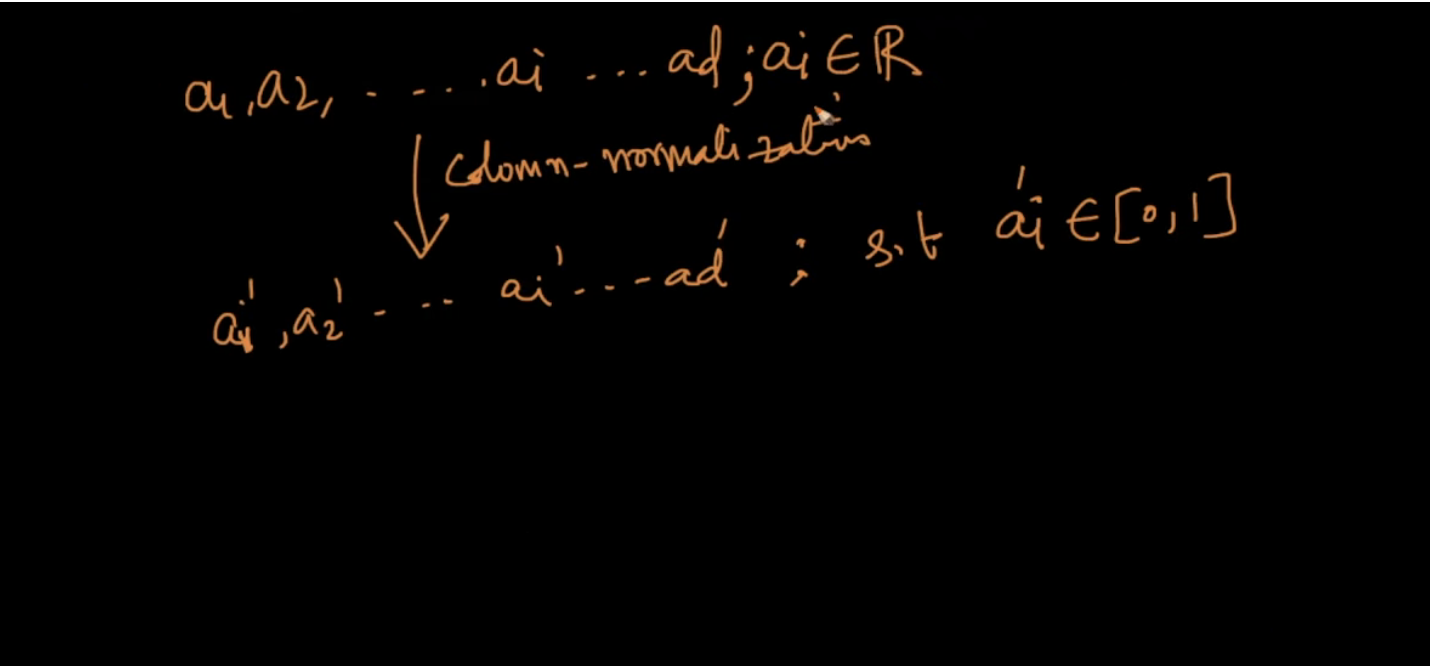 a1, a2, - - - . . . ai - - . . . ad ; ai ∈ ℝ
column-normalization
a1', a2' - - - - ai' . . . - ad' ; s.t ai' ∈ [0,1]